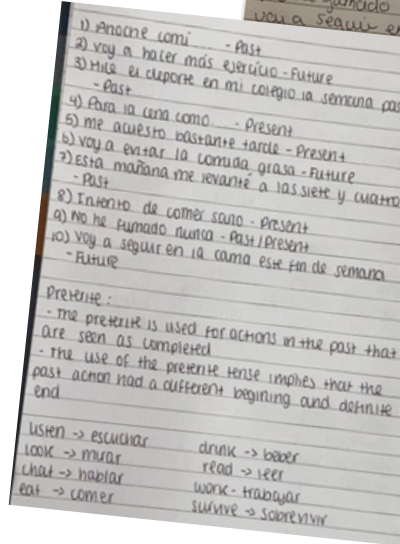 gumado
voy a seguir en
1) Anoche comi ... - Past
2) Voy a hacer más ejercicio - Future
3) Hice el deporte en mi colegio la semana pas
- Past
4) Para la cena como ... - Present
5) me acuesto bastante tarde - Present
6) Voy a evitar la comida grasa - Future
7) Esta mañana me levanté a las siete y cuatro
- Past
8) Intento de comer sano - Present
9) No he fumado nunca - Past/Present
10) Voy a seguir en la cama este fin de semana
- Future
Preterite:
- The preterite is used for actions in the past that
are seen as completed
- The use of the preterite tense implies that the
past action had a different begining and definite
end
listen -> escuchar
look -> mirar
chat -> hablar
eat -> comer
drink -> beber
read -> leer
work - trabajar
survive -> sobrevivir